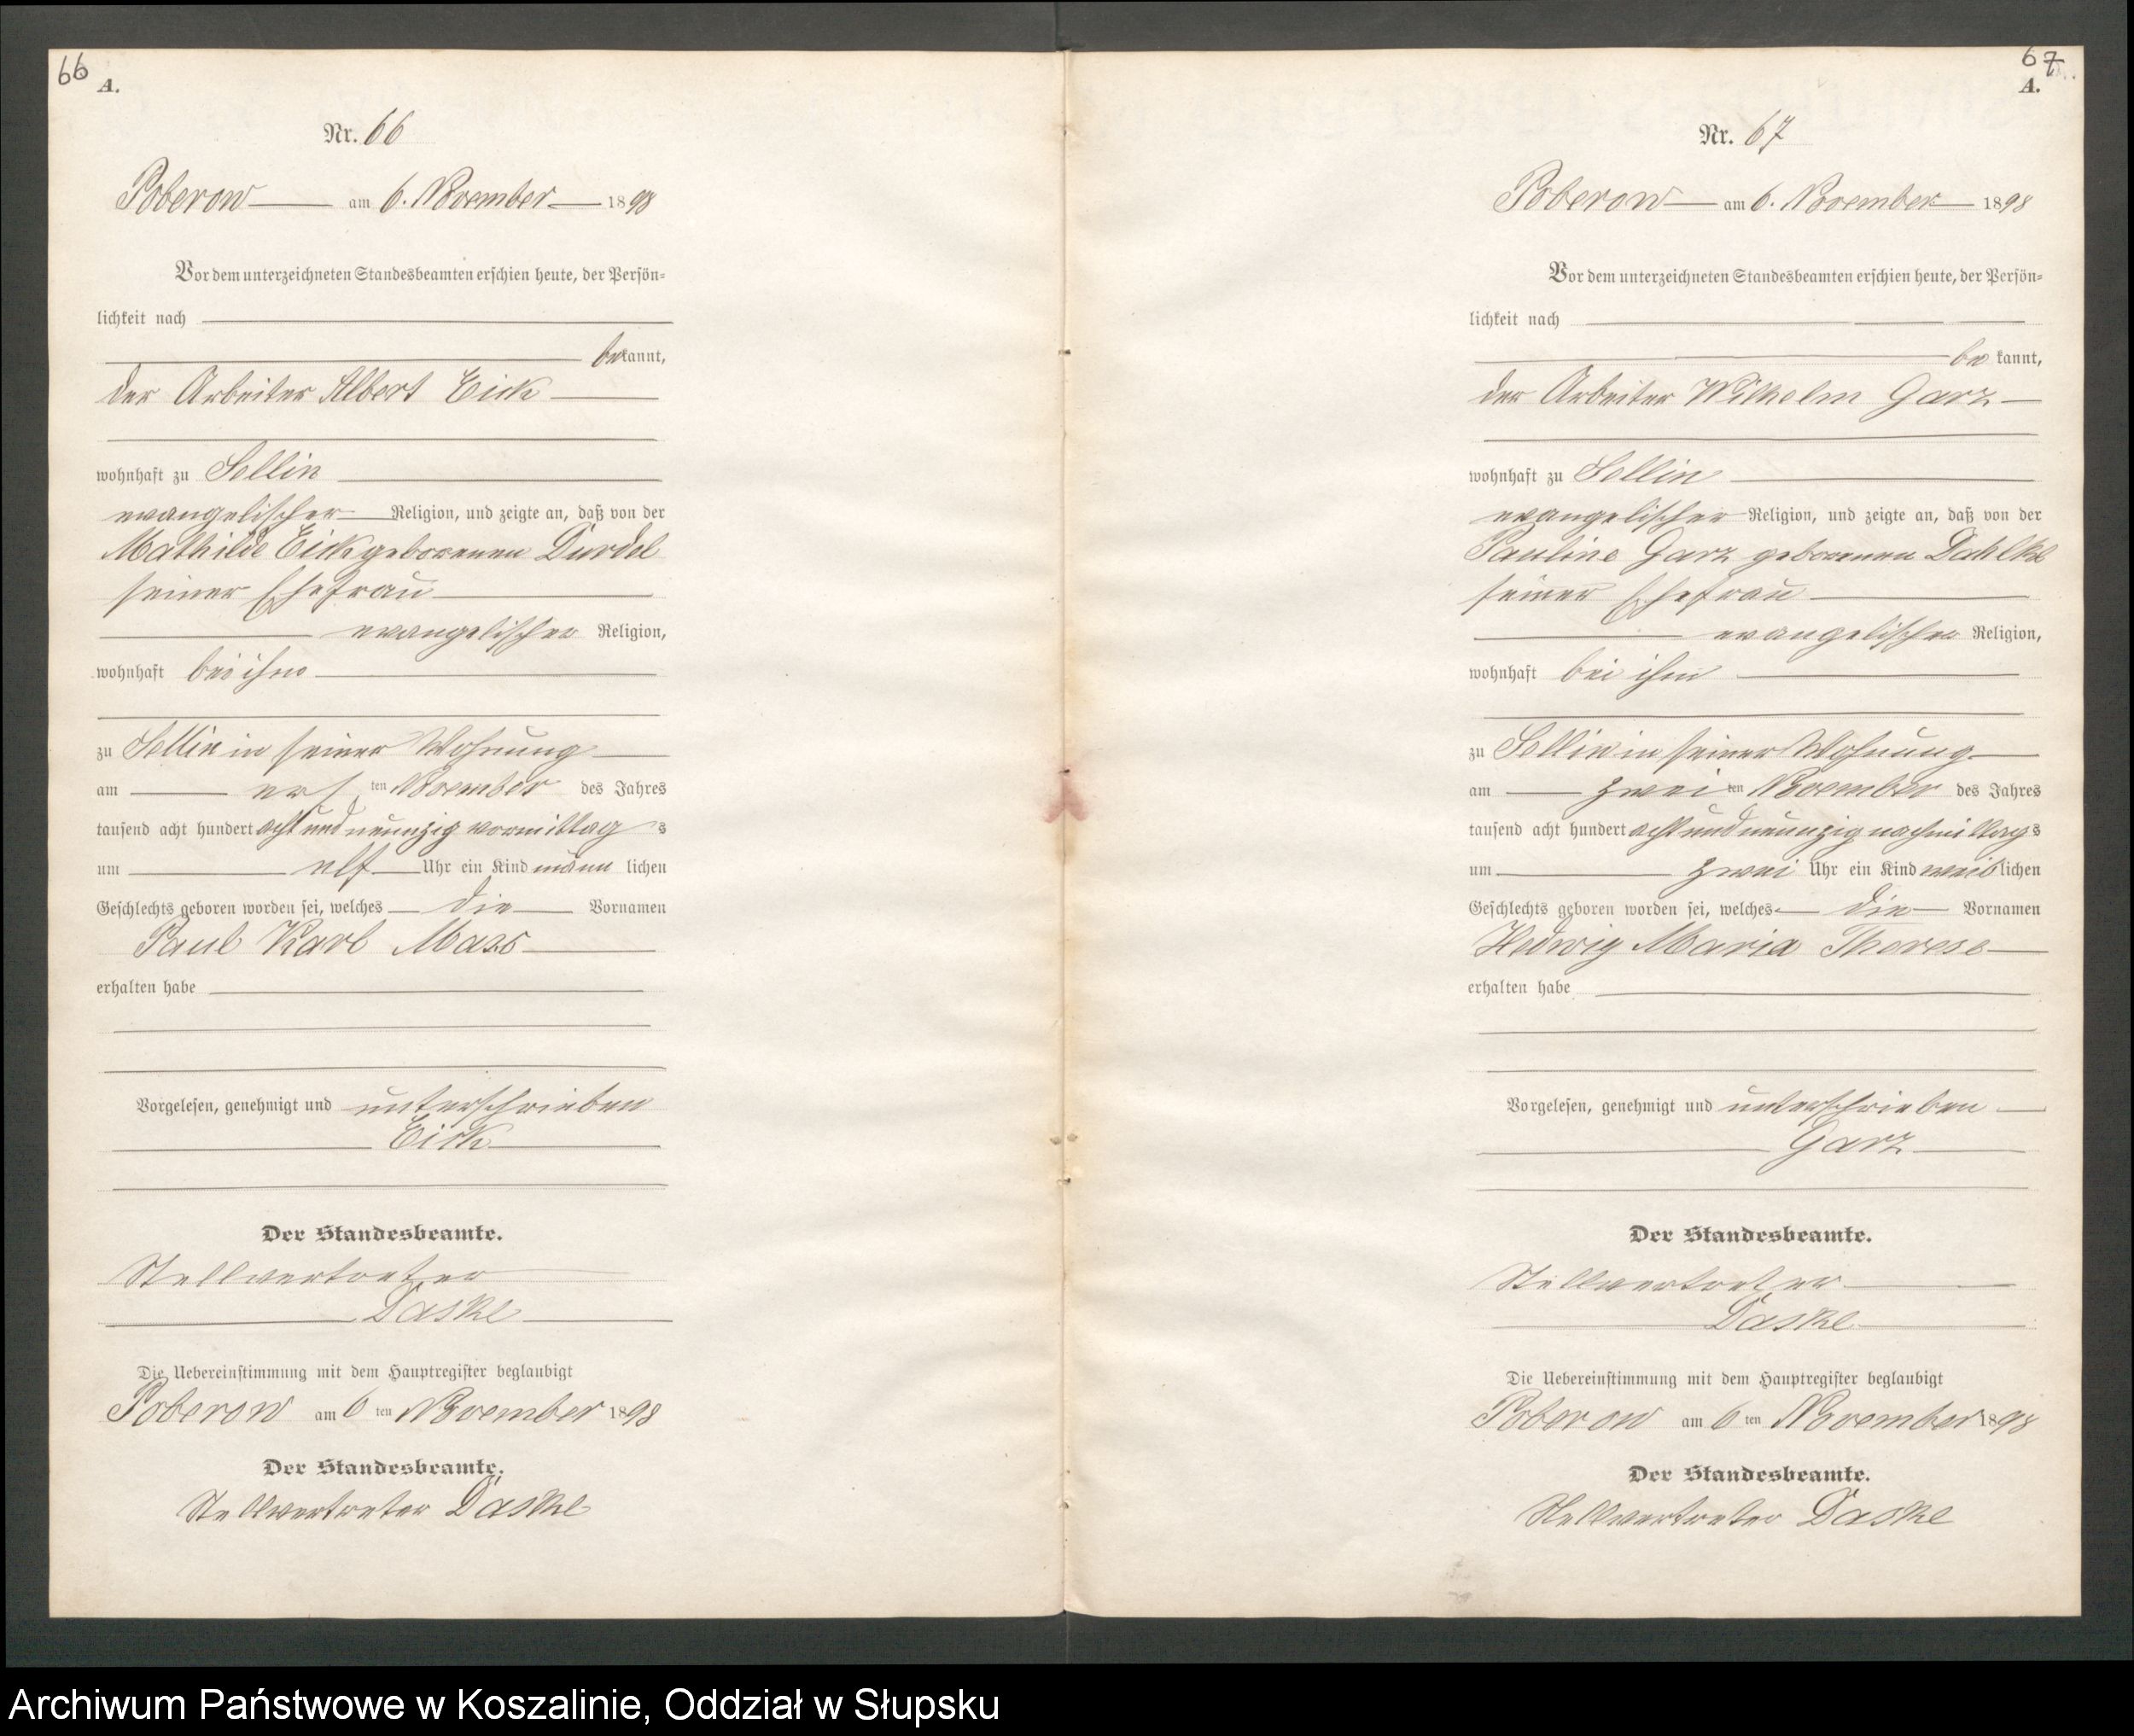 66
A.
Nr. 66
Poberow am 6. November 1898
Vor dem unterzeichneten Standesbeamten erschien heute, der Persön-
lichkeit nach
bekannt,
der Arbeiter Albert Eick
wohnhaft zu Sellin
evangelischer Religion, und zeigte an, daß von der
Mathilde Eick geborenen Durdel
seiner Ehefrau
evangelischer Religion,
wohnhaft bei ihm
zu Sellin in seiner Wohnung
am ersten November des Jahres
tausend acht hundert acht und neunzig vormittags
um elf Uhr ein Kind männlichen
Geschlechts geboren worden sei, welches die Vornamen
Paul Karl
erhalten habe
Vorgelesen, genehmigt und unterschrieben
Eick
Der Standesbeamte.
Stellvertreter
Daske
Die Uebereinstimmung mit dem Hauptregister beglaubigt
Poberow am 6ten November 1898
Der Standesbeamte.
Stellvertreter Daske
67
A.
Nr. 67
Poberow am 6. November 1898
Vor dem unterzeichneten Standesbeamten erschien heute, der Persön-
lichkeit nach
bekannt,
der Arbeiter Wilhelm Garz
wohnhaft zu Sellin
evangelischer Religion, und zeigte an, daß von der
Pauline Garz geborenen Dahlke
seiner Ehefrau
evangelischer Religion,
wohnhaft bei ihm
zu Sellin in seiner Wohnung
am zweiten November des Jahres
tausend acht hundert acht und neunzig nachmittags
um zwei Uhr ein Kind weiblichen
Geschlechts geboren worden sei, welches die Vornamen
Hedwig Maria Therese
erhalten habe
Vorgelesen, genehmigt und unterschrieben
Garz
Der Standesbeamte.
Stellvertreter
Daske
Die Uebereinstimmung mit dem Hauptregister beglaubigt
Poberow am 6ten November 1898
Der Standesbeamte.
Stellvertreter Daske
Archiwum Państwowe w Koszalinie, Oddział w Słupsku